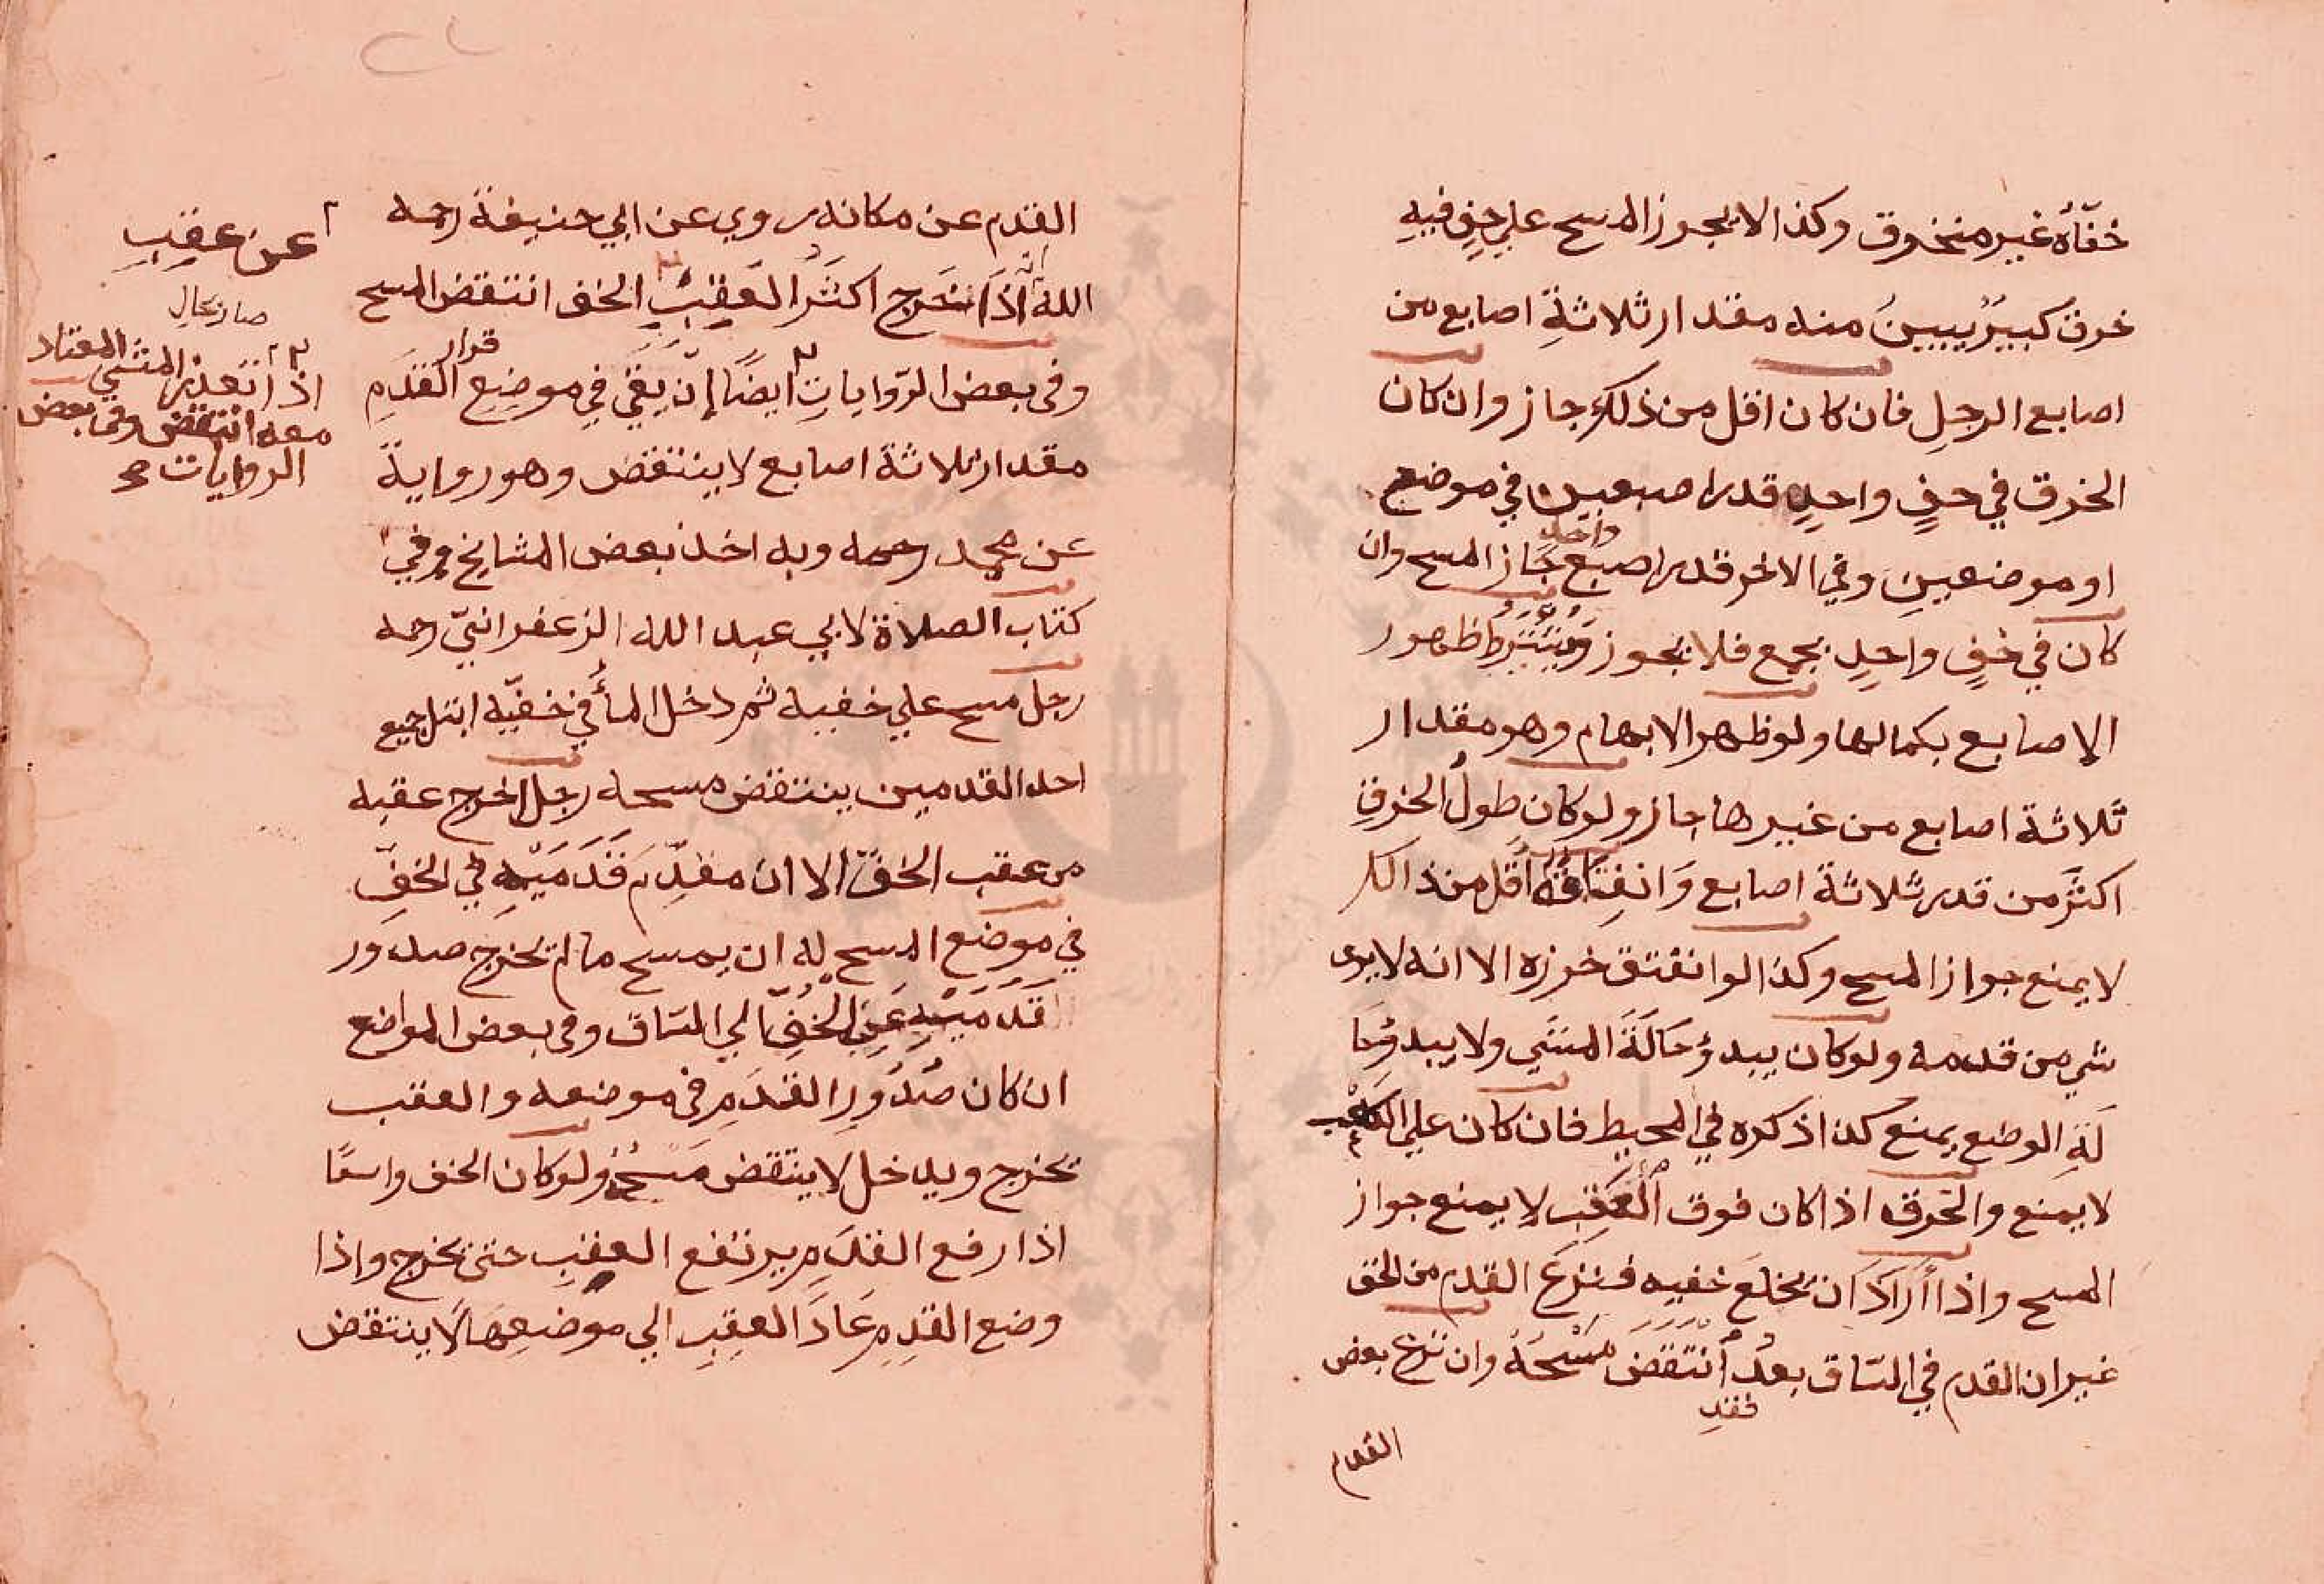 خفّاه غير منخرق وكذا لا يجوز المسح علي خفٍ فيهِ
خرق كبيرٌ يبينُ منه مقدار ثلاثةِ اصابع من
اصابع الرجلِ فان كان اقل من ذلك جاز وان كان
الخرق في خفٍ واحدٍ قدر اصبعين في موضع
او موضعينِ وفي الاخر قدر اصبع جاز المسح وان
واحد
كان في خفٍ واحدٍ يجمع فلا يجوز ويُشترطُ ظهور
الاصابع بكمالها ولو ظهر الابهام وهو مقدار
ثلاثة اصابع من غيرها جاز ولو كان طولُ الخرقِ
اكثرَ من قدر ثلاثة اصابع وَانفِتاحُهُ اقل من ذالك
لا يمنع جواز المسح وكذا لو انفتق خرزه الا انه لا يرى
شي من قدمه ولو كان يبدؤ حَالَةَ المشي ولا يبدؤ حَا
لَةِ الوضع يمنع كذا ذكره في المحيط فان كان علي الكعب
لا يمنع والخرق اذا كان فوق العَقِبِ لا يمنع جواز
المسح واذا أرَادَ ان يخلعَ خفيه فنزعَ القدم من الخف
غير ان القدم في السّاق بعدُ انتَقَضَ مَسْحُهُ وان نزع بعض
القدم
القدم عن مكانه روي عن ابي حنيفة رحمه
الله انه اذَا خَرج اكثَرُ العَقِبِ الخف انتقض المسح
وفى بعض الرّواياتِ ايضًا إنْ بقيَ في موضِعِ القَدَمِ
قرار
مقدار ثلاثة اصابع لا ينتقض وهو رواية
عن محمد رحمه وبه اخذ بعض المشايخ وفي
كتاب الصلاة لابي عبد الله الزعفرانيّ رحمه
رجل مسح علي خفيه ثم دخل المأ في خفيّه ابتل جميع
احد القدمين ينتقض مسحه رجل اخرج عقبه
من عقب الخفّ الا ان مقدّم قَدَمَيْهِ في الخفِّ
في موضع المسح له ان يمسح ما لم تخرج صدور
قَدَمَيْهِ عَنِ الخفِّ الي السّاق وفى بعض المواضع
ان كان صُدُورِ القدَمِ في موضعه والعقب
تخرج ويدخل لا ينتقض مَسْحُهُ ولو كان الخف واسعًا
اذا رفع القدَمِ يرتفع العقِبِ حتى يخرج واذا
وضع القدِمِ عَادَ العقِبِ الي موضعِهَا لا ينتقض
عن عقبِ
اذا تعذر المشي المعتاد
معه انتقض وفى بعض
الروايات صح